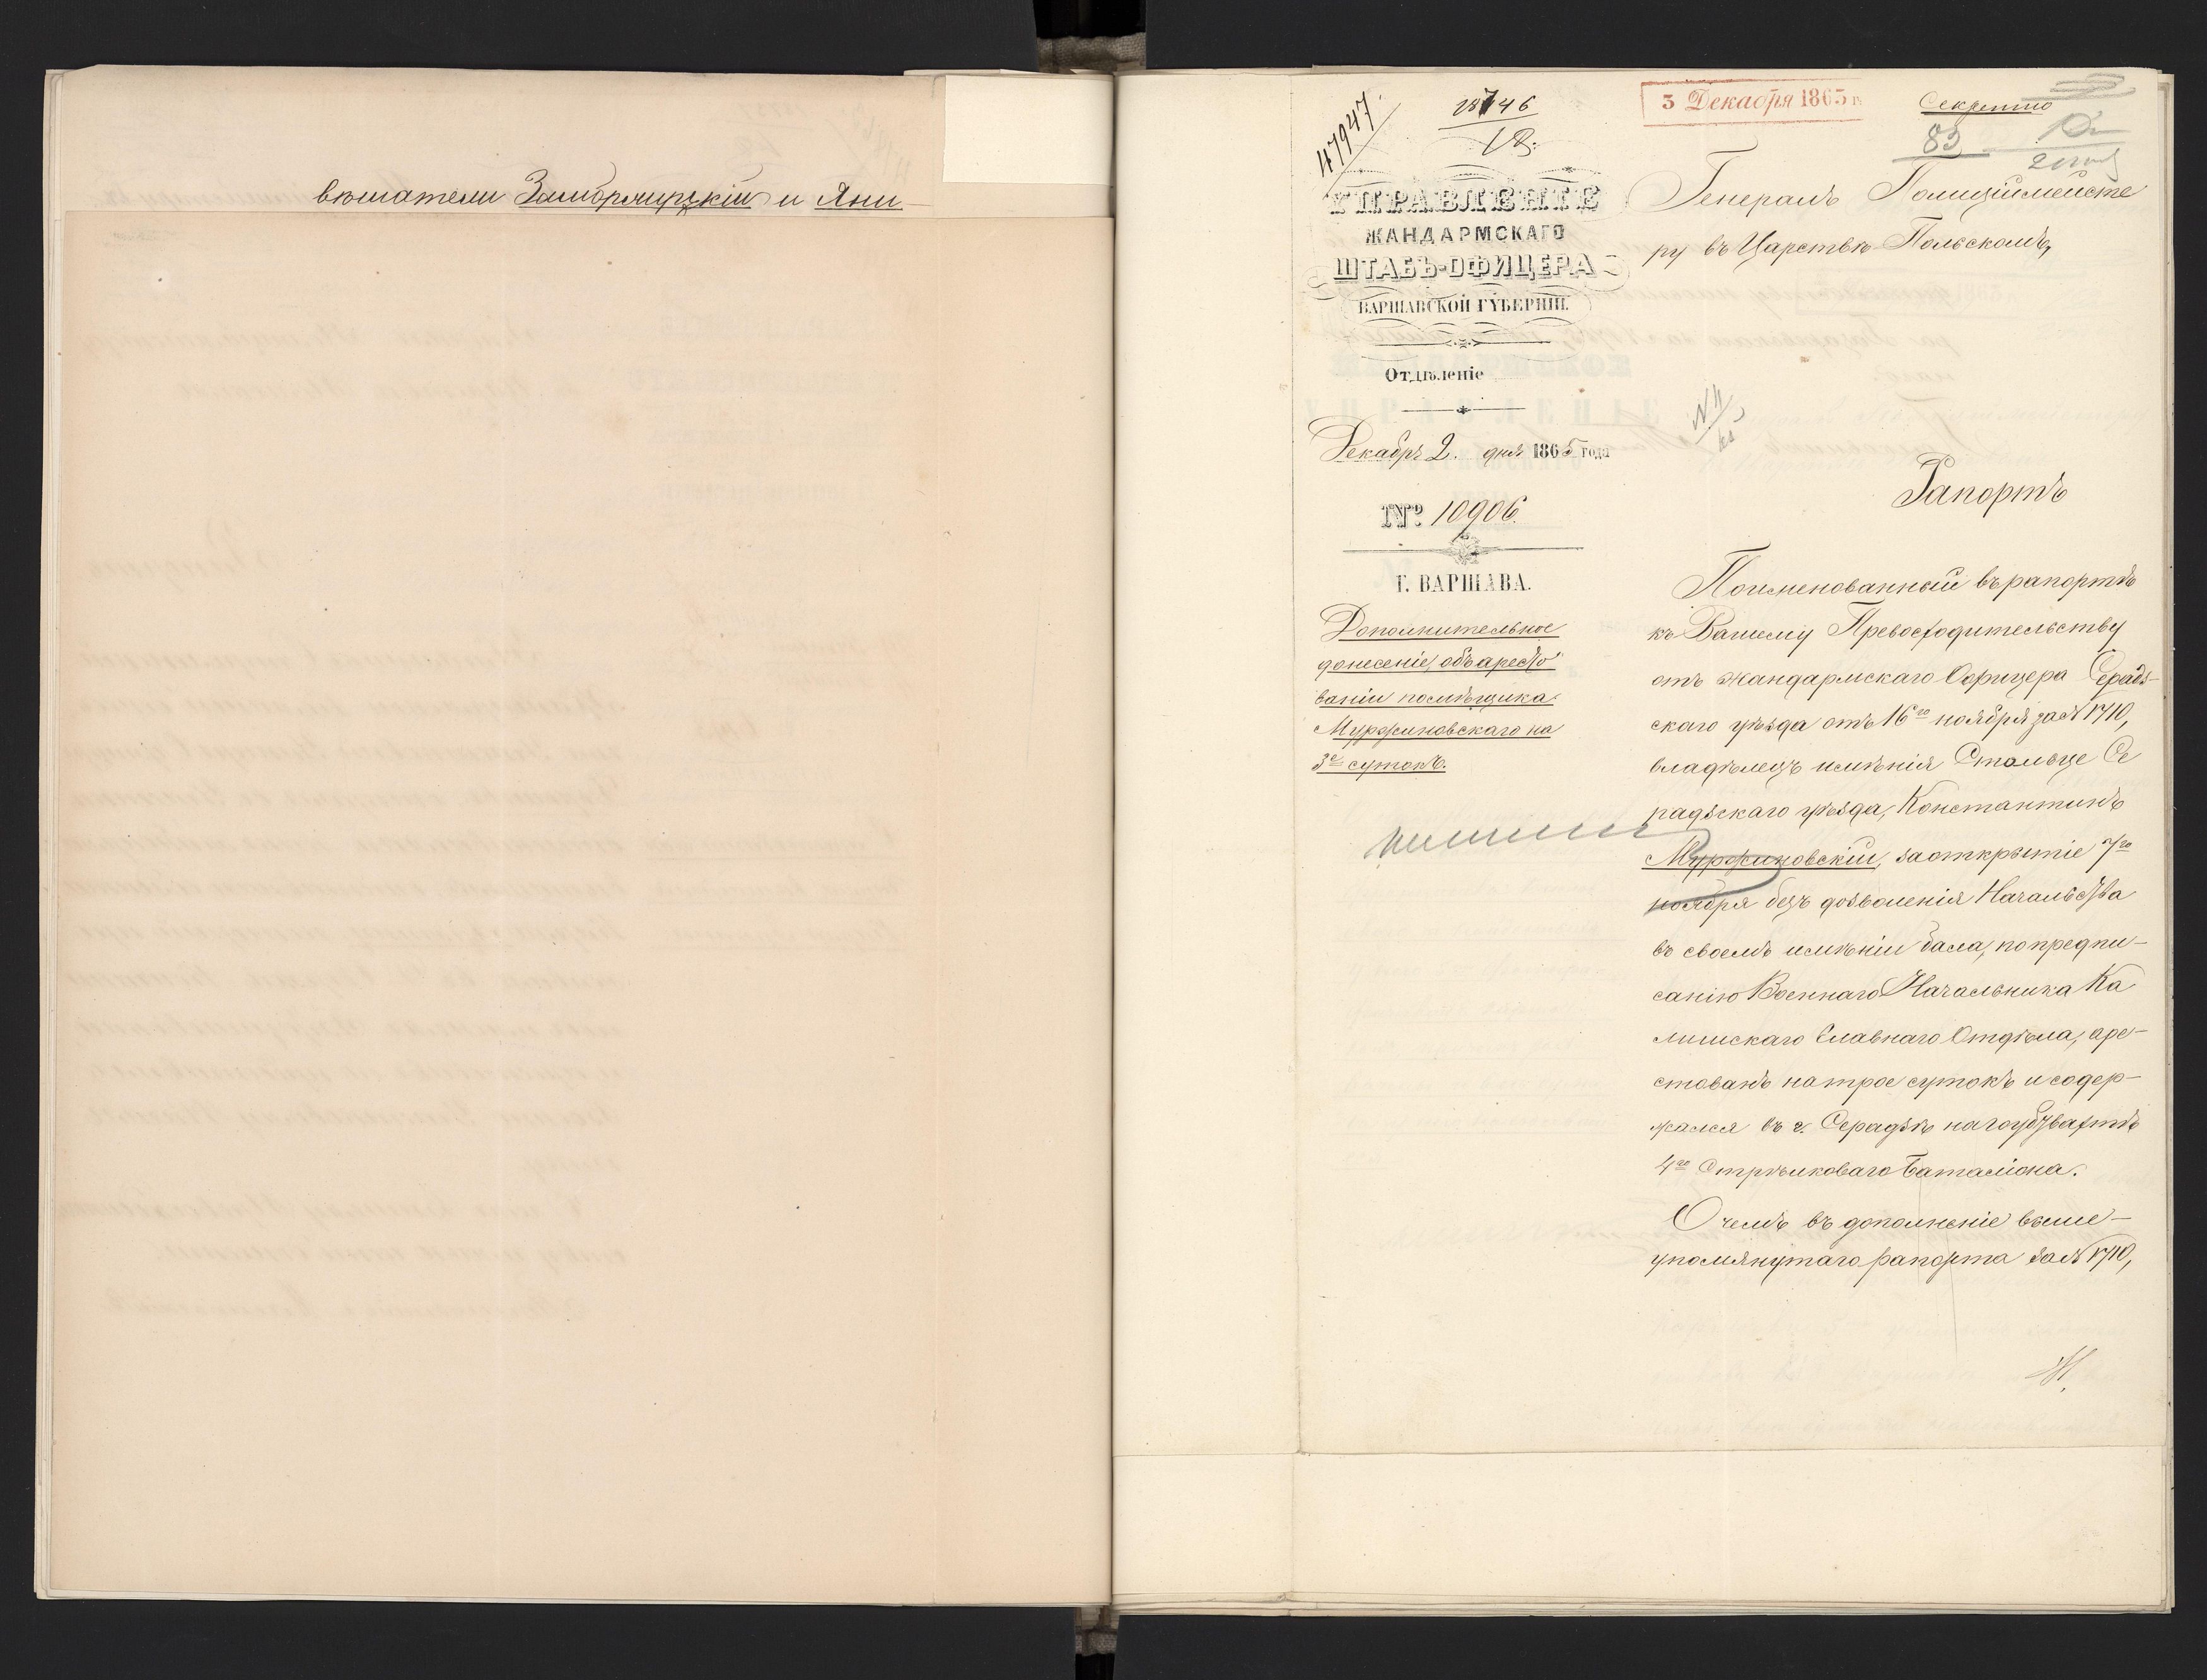 вѣшатели Замбржицкій и Яни-
47947
18746
3 Декабря 1865 г.
Секретно
82
УПРАВЛЕНІЕ
ЖАНДАРМСКАГО
ШТАБЪ-ОФИЦЕРА
ВАРШАВСКОЙ ГУБЕРНІИ.
Отдѣленіе
Декабря 2. дня 1865 года
№ 10906.
Г. ВАРШАВА.
Дополнительное
донесеніе, объ аресто
ваніи помѣщика
Муржиновскаго на
3е сутокъ.
Генералъ Полицiймейсте
ру въ Царствѣ Польскомъ,
Рапортъ
Поименованный въ рапортѣ
къ Вашему Превосходительству
отъ Жандармскаго Офицера Серадз-
скаго уѣзда отъ 16го ноября за № 1710,
владѣлецъ имѣнія Стольце Се
радзскаго уѣзда, Константинъ
Муржиновскій, за открытіе 7го
ноября безъ дозволенія Начальства
въ своемъ имѣніи бала, по предпи-
санію Военнаго Начальника Ка
лишскаго Главнаго Отдѣла, аре-
стованъ на трое сутокъ и содер-
жался въ г. Серадзѣ на гоубтвахтѣ
4го Стрѣлковаго Баталіона.
О чемъ въ дополненіе выше-
упомянутаго рапорта за № 1710,